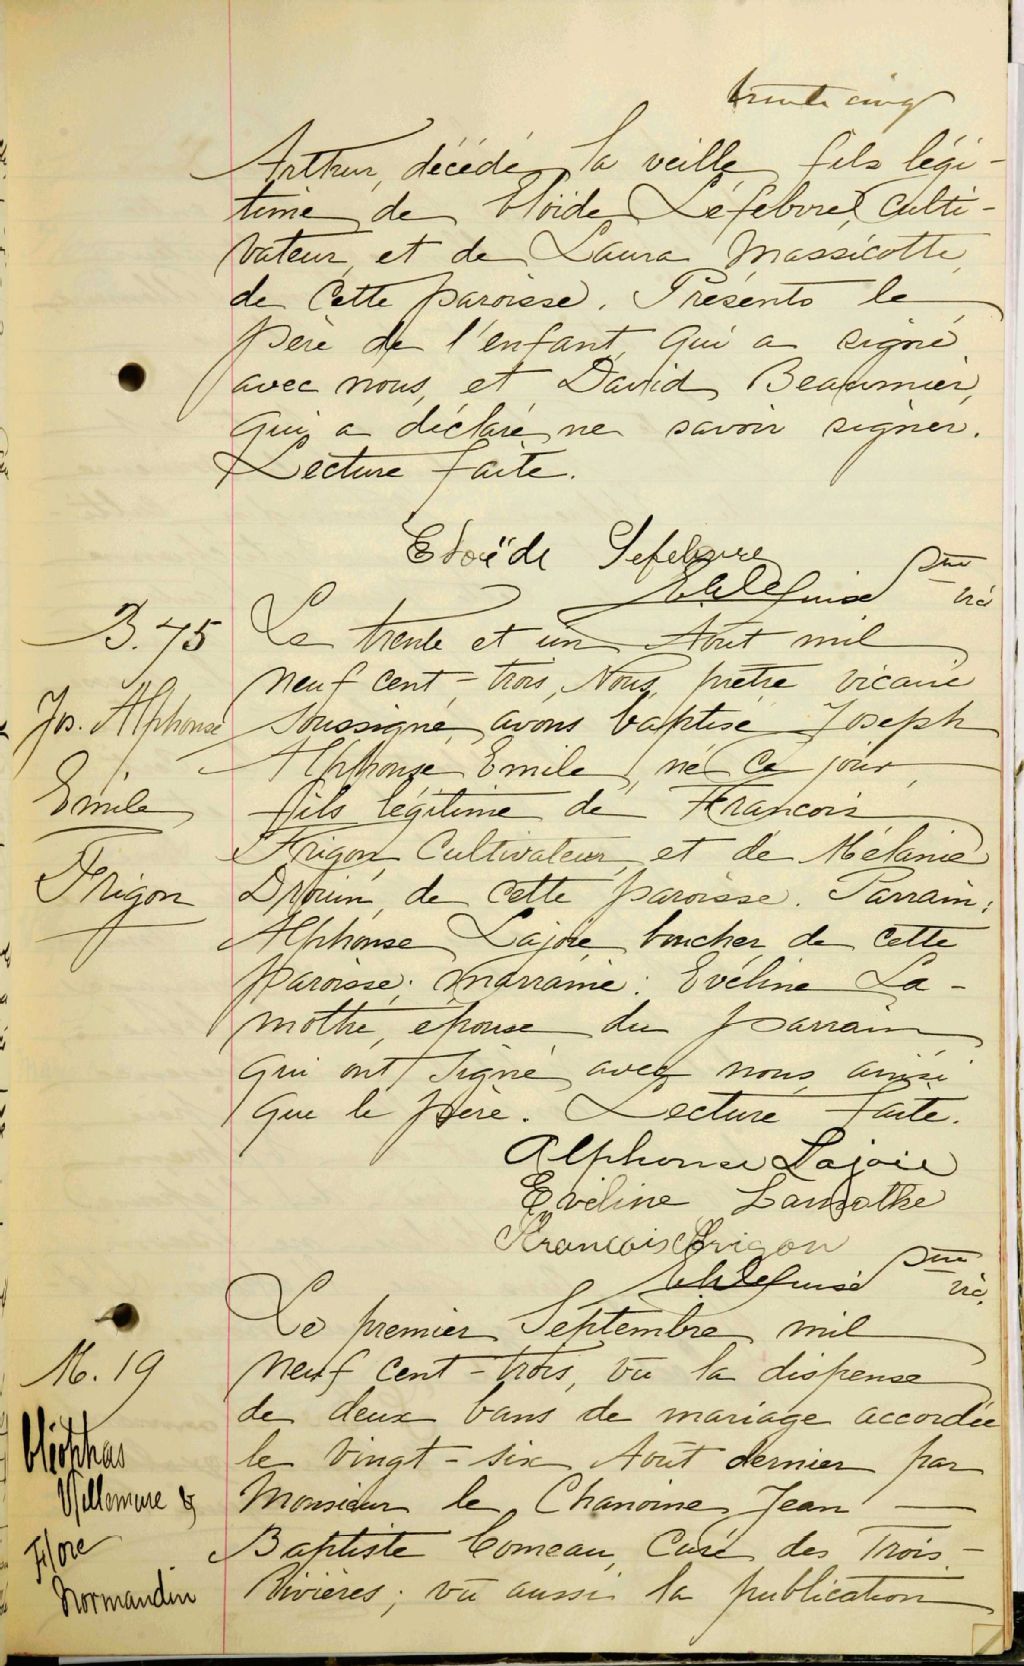 trente cinq
Arthur, décédé la veille fils légi-
time de Eloïde Lefebvre, culti-
vateur, et de Laura Massicotte,
de cette paroisse. Présents le
père de l'enfant qui a signé
avec nous, et David Beaumier,
qui a déclaré ne savoir signer.
Lecture faite.
Lefebvre
ptre
vic.
B. 75
Jos. Alphonse
Emile
Frigon
Le trente et un Août mil
neuf cent-trois, Nous, prêtre vicaire
soussigné, avons baptisé Joseph
Alphonse Emile, né ce jour,
fils légitime de Francois
Frigon, Cultivateur, et de Mélanie
Drouin, de cette paroisse. Parrain:
Alphonse Lajoie, boucher, de cette
paroisse; marraine: Evéline La-
mothe, épouse du parrain
qui ont signé avec nous ainsi
que le père. Lecture faite.
Alphonse Lajoie
Evéline Lamothe
Francois Frigon
ptre
vic.
M. 19
Cléophas
Villemure &
Flore
Normandin
Le premier Septembre mil
neuf cent-trois, vu la dispense
de deux bans de mariage accordée
le vingt-six Août dernier par
Monsieur le Chanoine Jean
Baptiste Comeau, Curé des Trois-
Rivières; vu aussi la publication